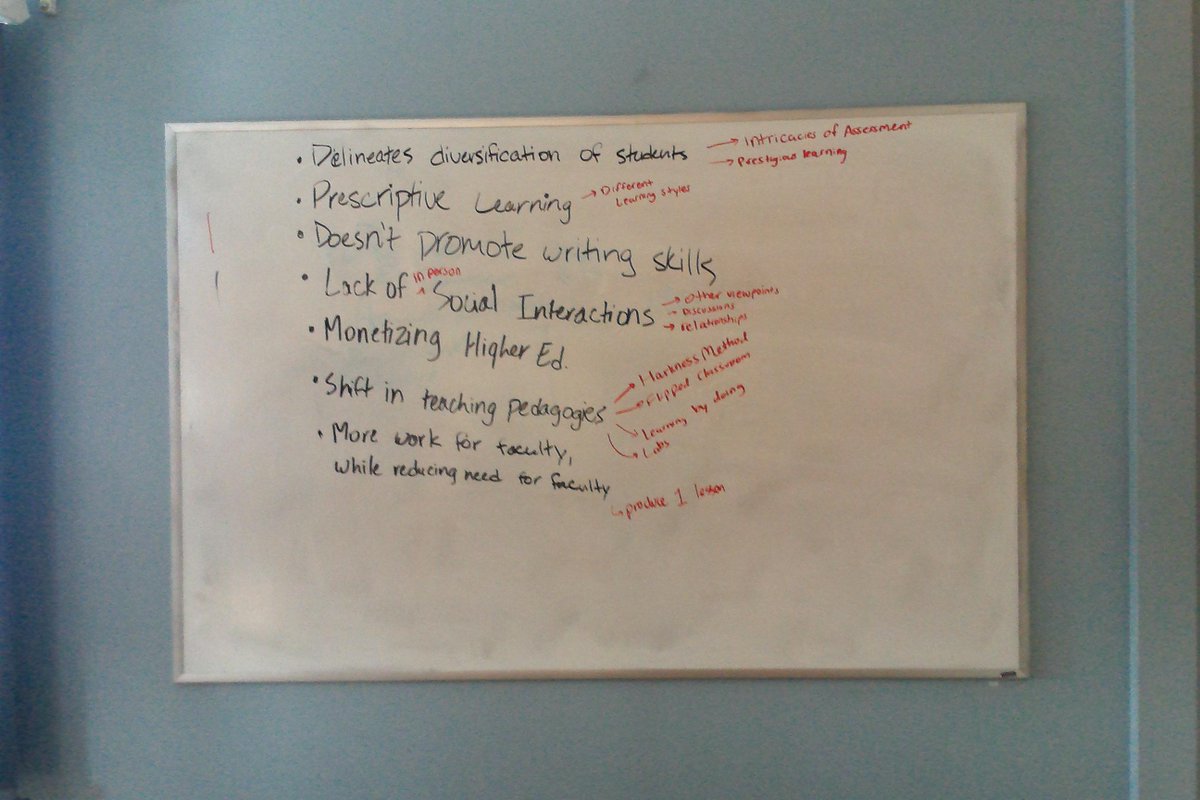 • Delineates diversification of students → Intricacies of Assessment
→ Prestigious learning
• Prescriptive Learning → Different
Learning styles
• Doesn't promote writing skills
• Lack of in person Social Interactions → Other viewpoints
→ Discussions
→ relationships
• Monetizing Higher Ed.
• Shift in teaching pedagogies → Harkness Method
→ Flipped Classroom
→ Learning by doing
→ Labs
• More work for faculty,
while reducing need for faculty
↳ produce 1 lesson